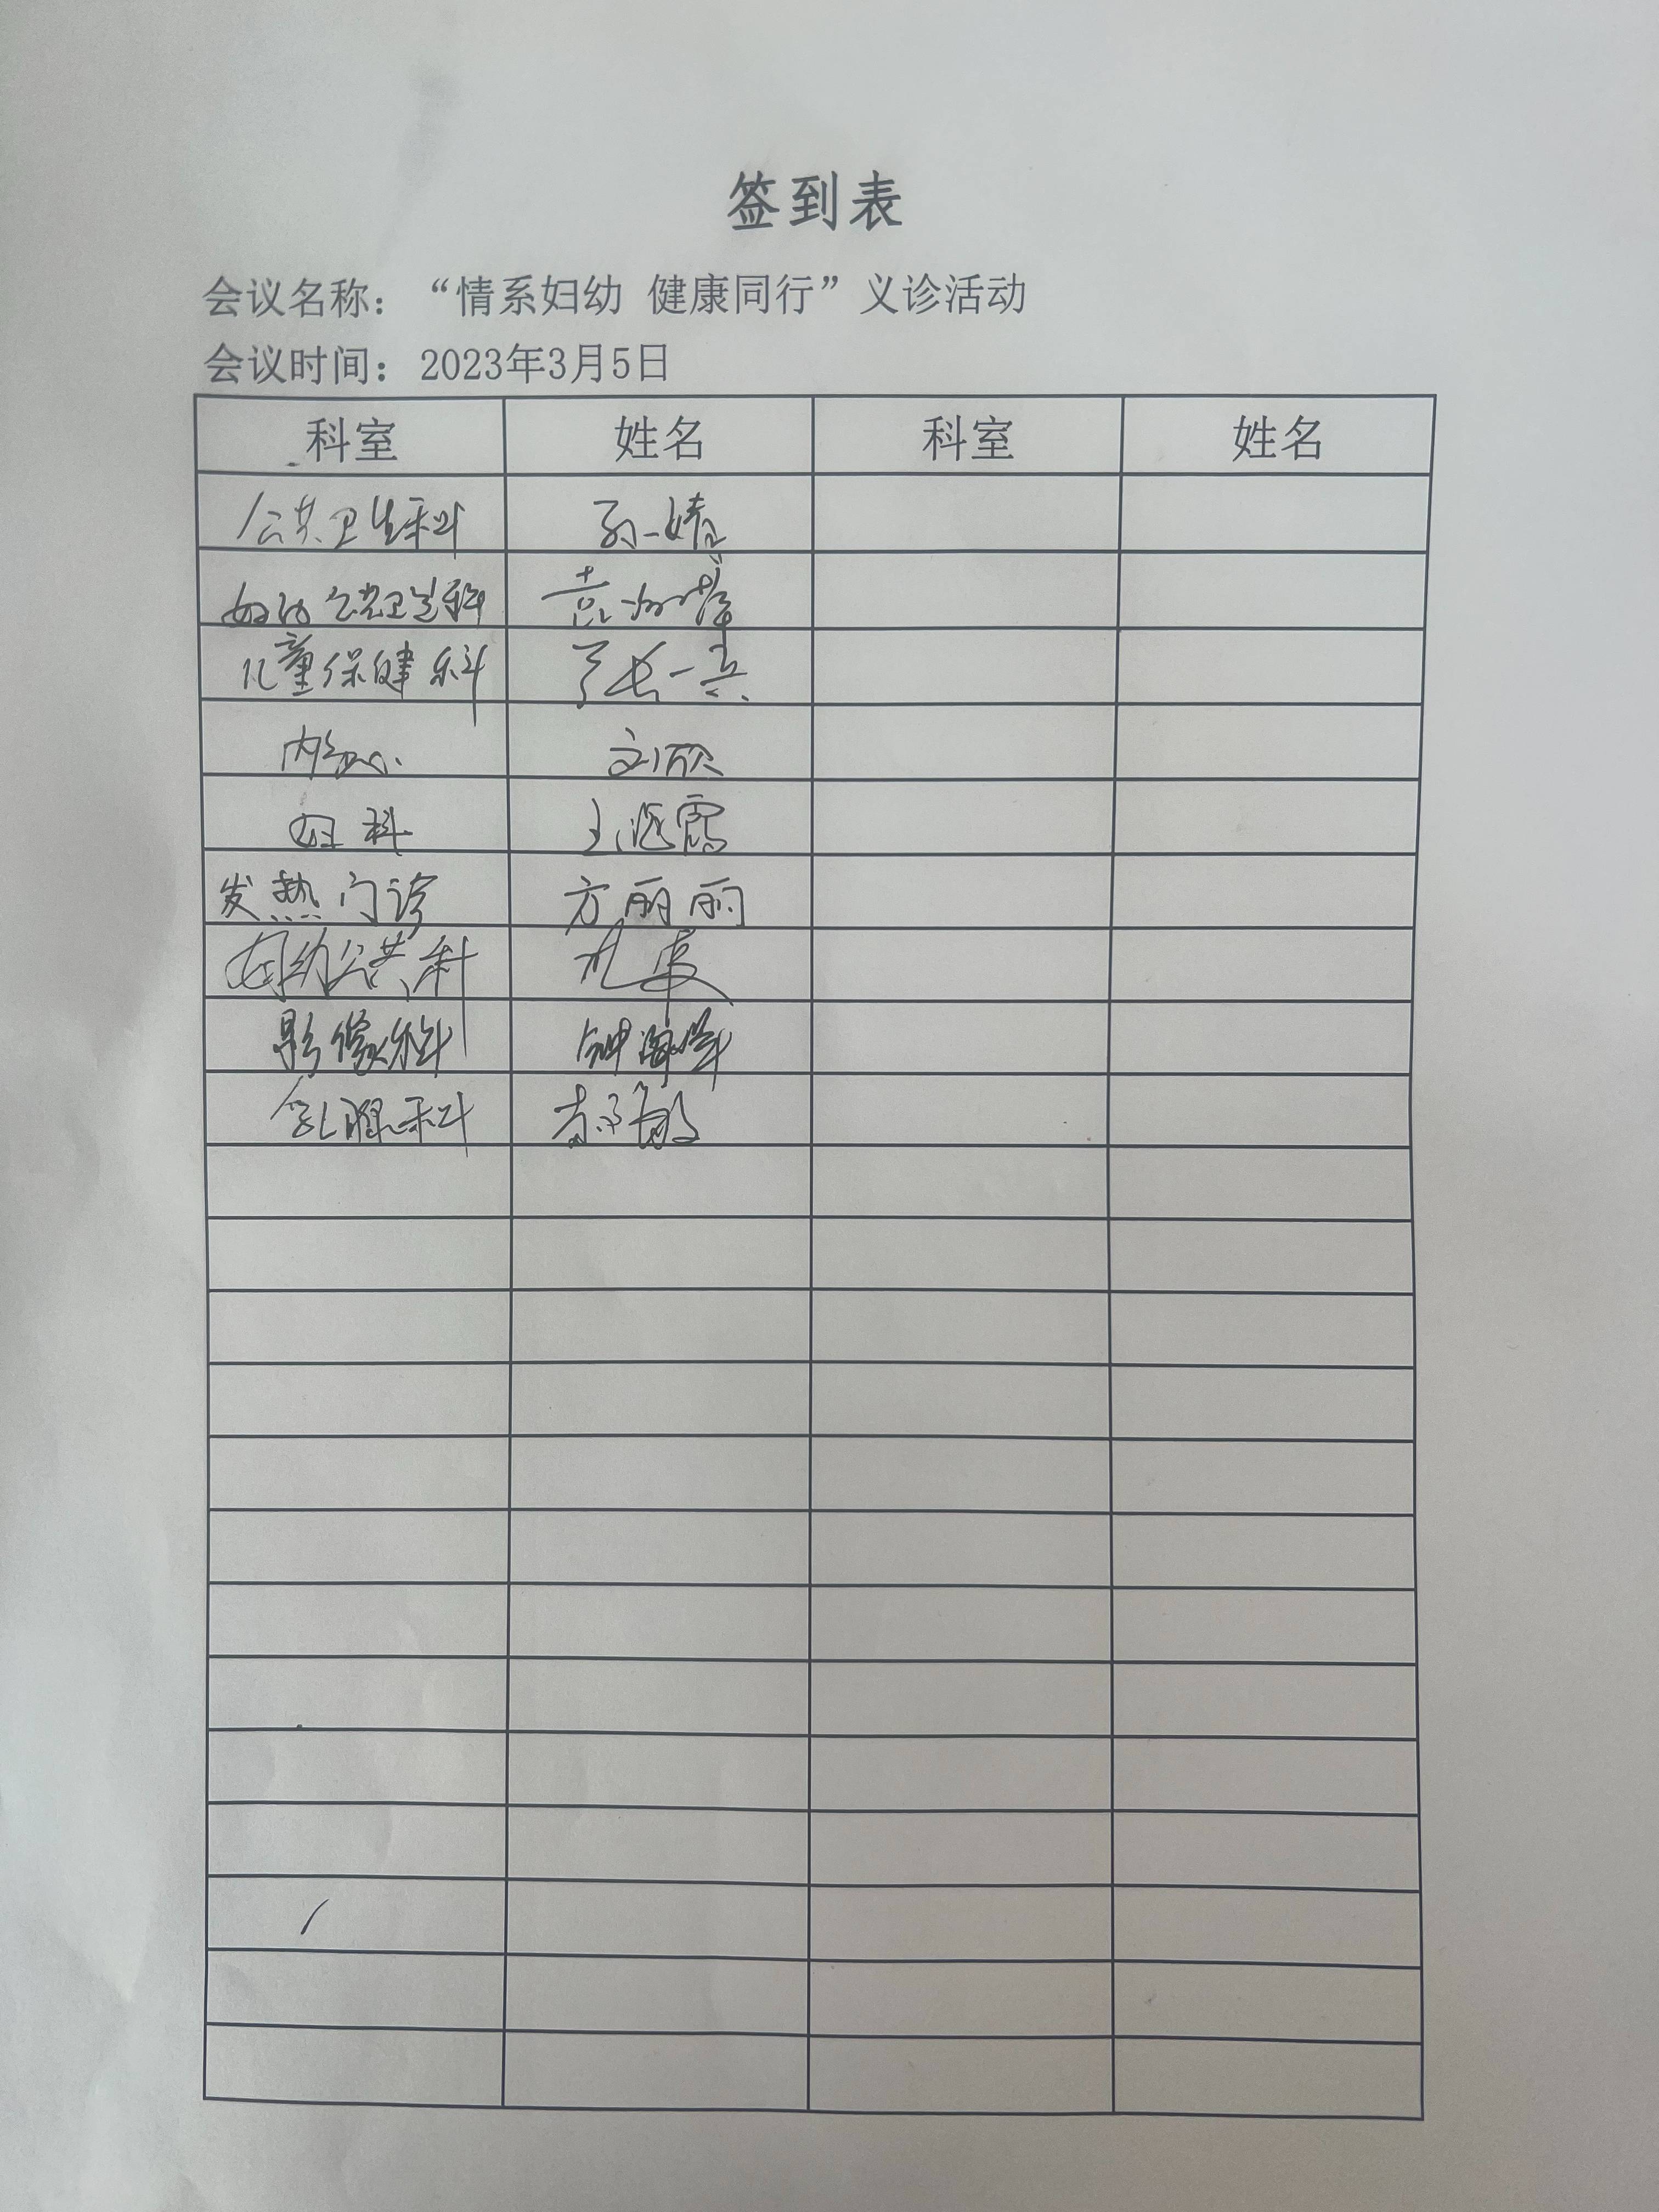 签到表
会议名称：“情系妇幼 健康同行”义诊活动
会议时间：2023年3月5日
科室 姓名 科室 姓名
公共卫生科 孙一婧
妇幼公共卫生科
儿童保健科
刘欣
妇科
发热门诊 方丽丽
妇幼公共科 孔雯
影像科
乳腺科